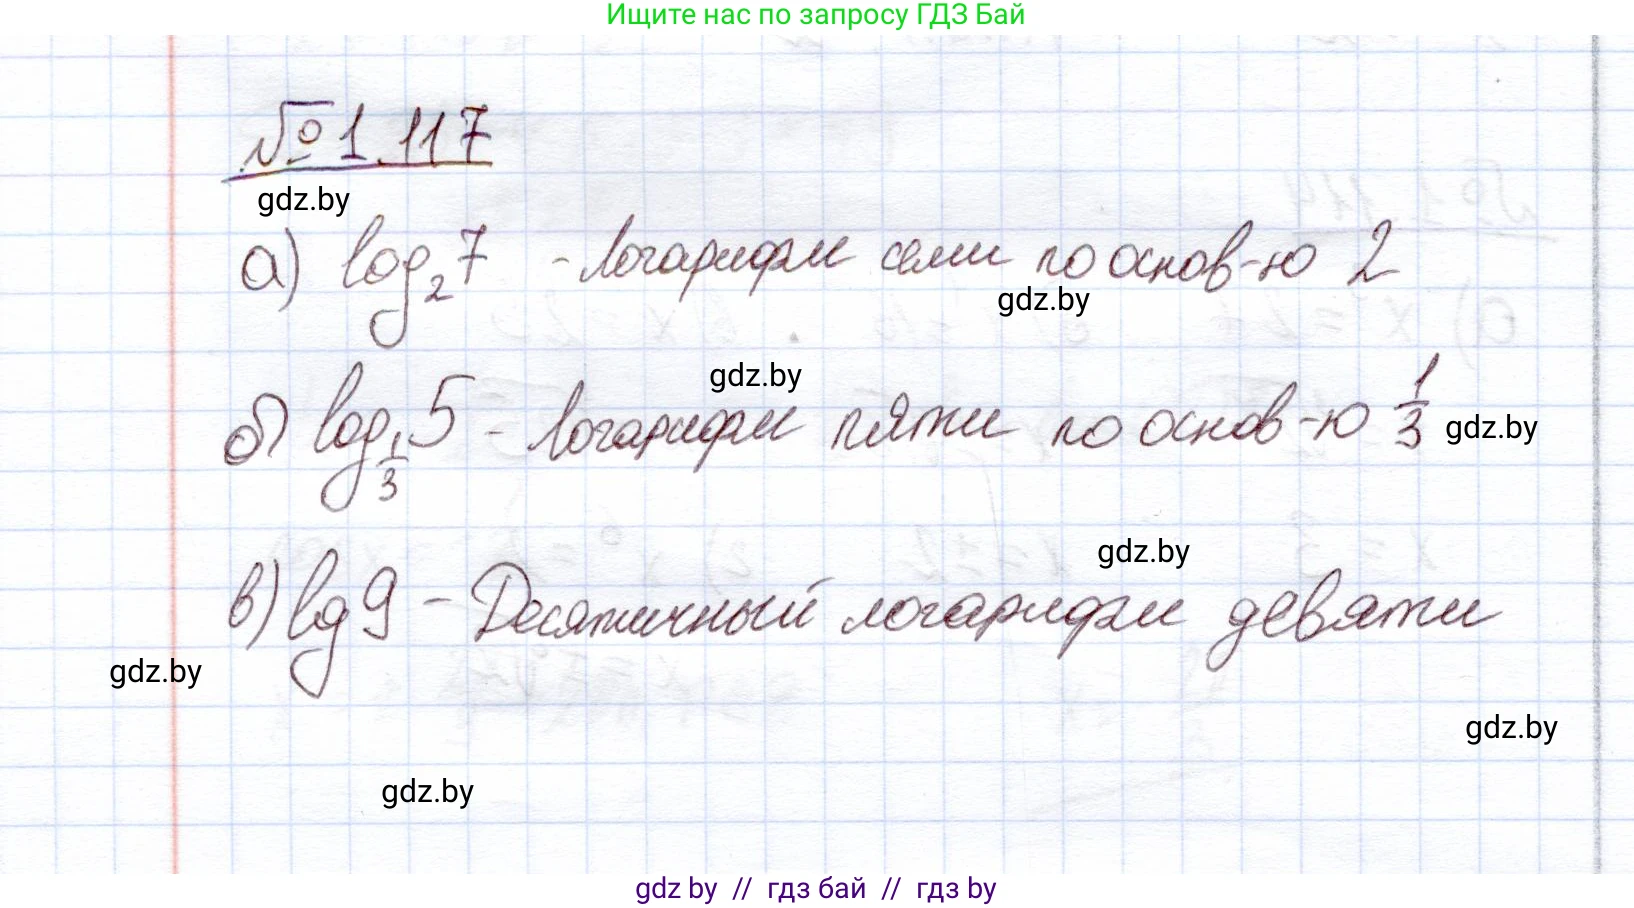 Ищите нас по запросу ГДЗ Бай
№ 1.117
gdz.by
а) log₂7 - логарифм семи по основ-ю 2
gdz.by
gdz.by
б) log_{1/3} 5 - логарифм пяти по основ-ю 1/3 gdz.by
gdz.by
в) lg 9 - Десятичный логарифм девяти
gdz.by
gdz.by
gdz.by
gdz by // гдз бай // гдз by